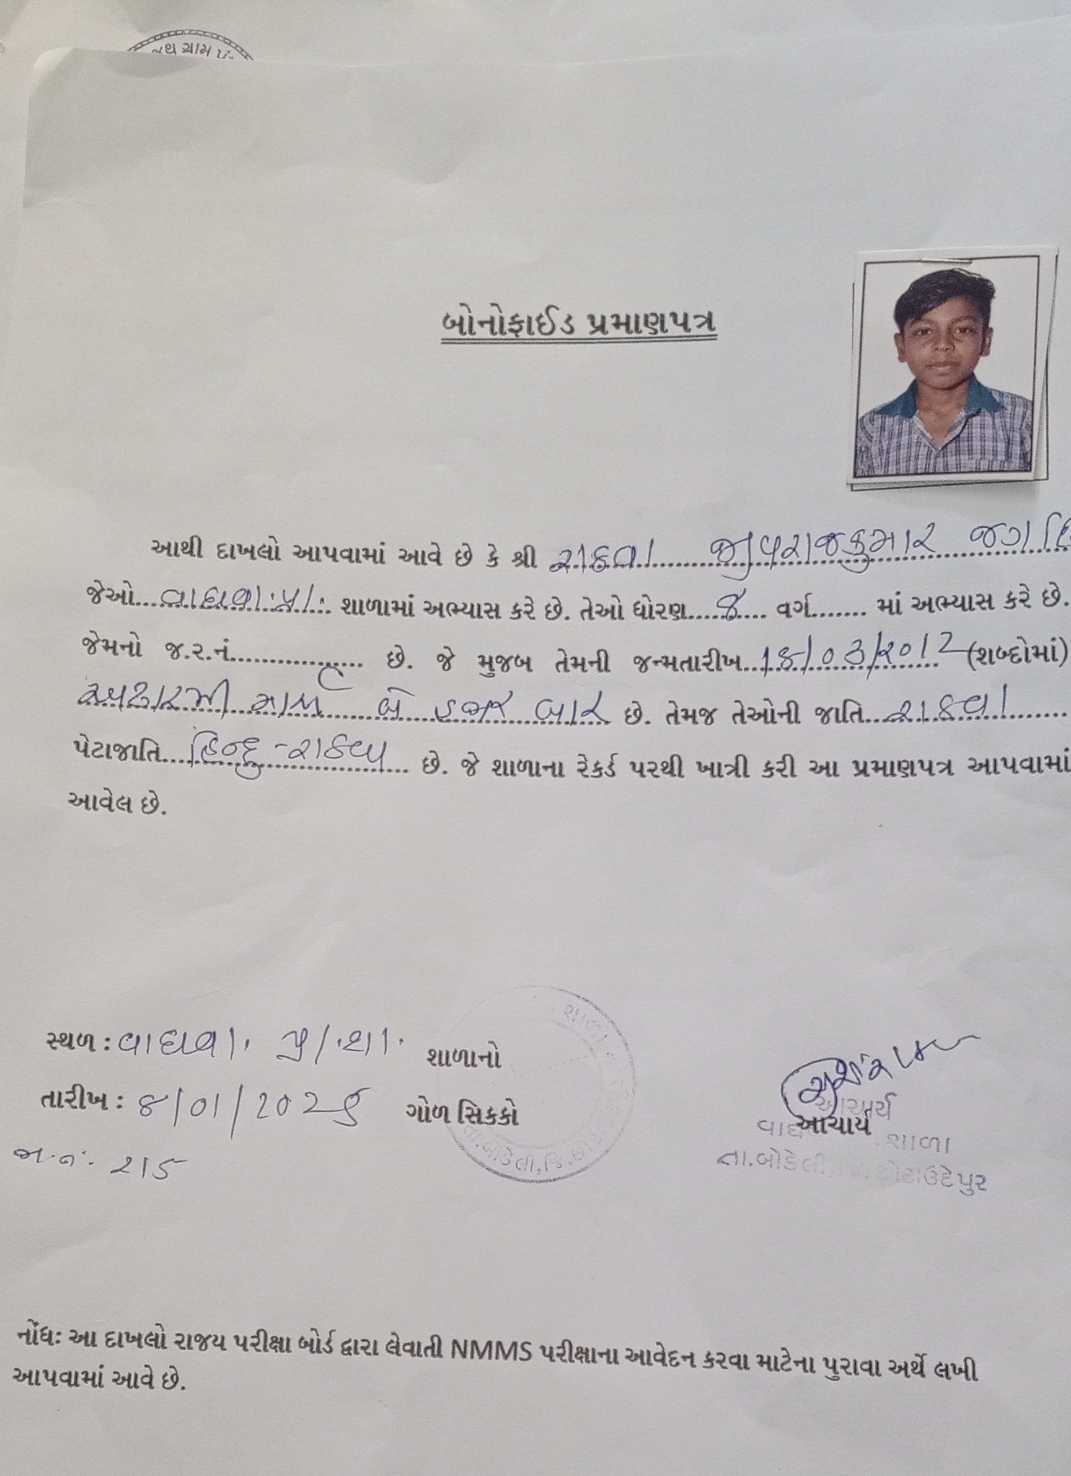 ગ્રામ પં.
બોનોફાઈડ પ્રમાણપત્ર
આથી દાખલો આપવામાં આવે છે કે શ્રી રાઠવા જીવરાજકુમાર
જેઓ વાઘવા પ્રા. શાળામાં અભ્યાસ કરે છે. તેઓ ધોરણ 8 વર્ગ....... માં અભ્યાસ કરે છે.
જેમનો જ.ર.નં................ છે. જે મુજબ તેમની જન્મતારીખ 18/03/2012 (શબ્દોમાં)
અઢારમી માર્ચ બે હજાર બાર છે. તેમજ તેઓની જાતિ રાઠવા
પેટાજાતિ હિન્દુ-રાઠવા છે. જે શાળાના રેકર્ડ પરથી ખાત્રી કરી આ પ્રમાણપત્ર આપવામાં
આવેલ છે.
સ્થળ : વાઘવા. પ્રા.શા. શાળાનો
તારીખ : 8/01/202 ગોળ સિકકો
215
આચાર્ય
આચાર્ય
શાળા
તા.બોડેલી, છોટાઉદેપુર
નોંધઃ આ દાખલો રાજય પરીક્ષા બોર્ડ દ્વારા લેવાતી NMMS પરીક્ષાના આવેદન કરવા માટેના પુરાવા અર્થે લખી
આપવામાં આવે છે.